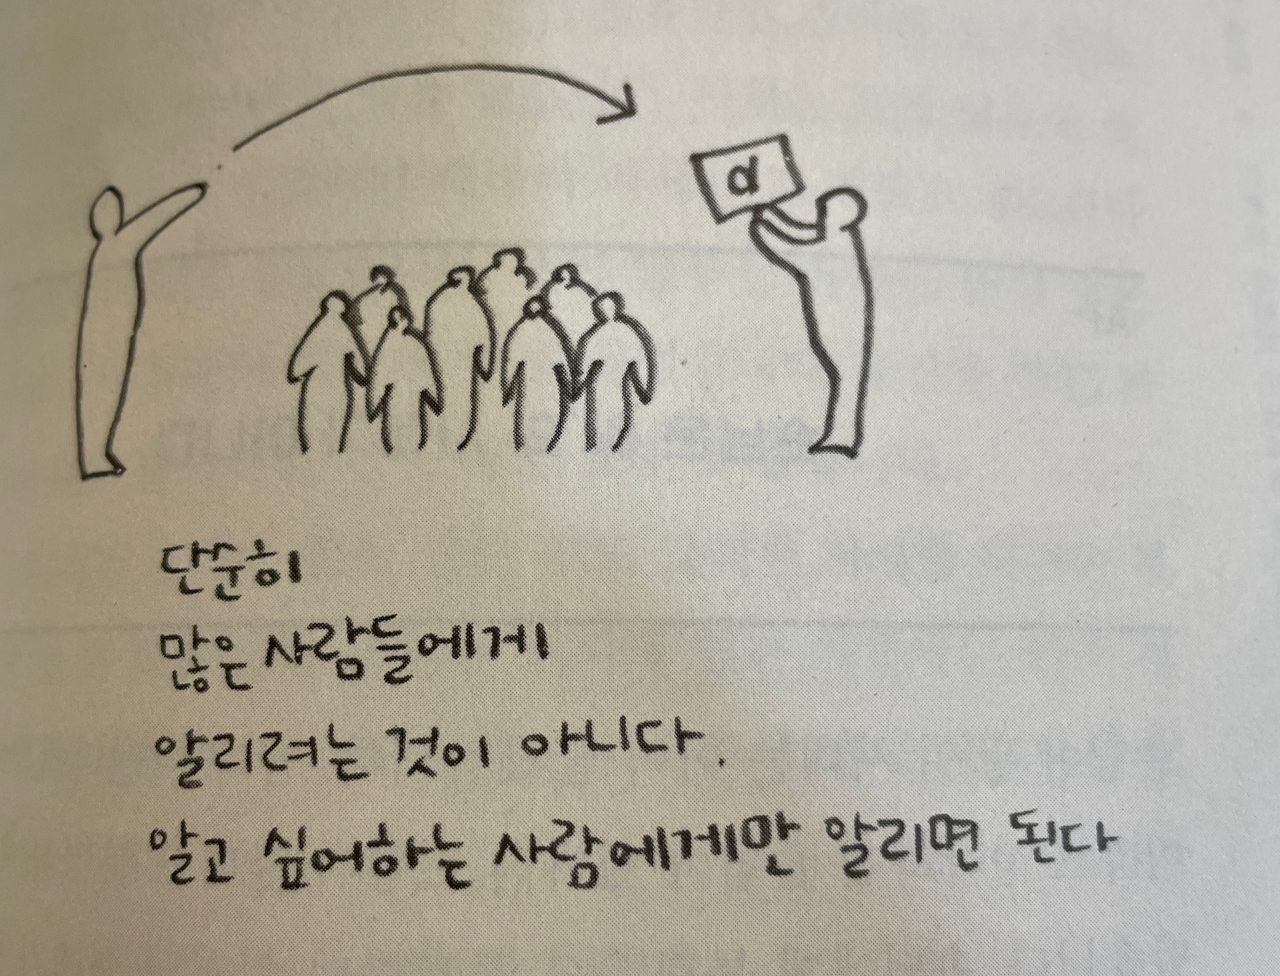 α
단순히
많은 사람들에게
알리려는 것이 아니다.
알고 싶어하는 사람에게만 알리면 된다